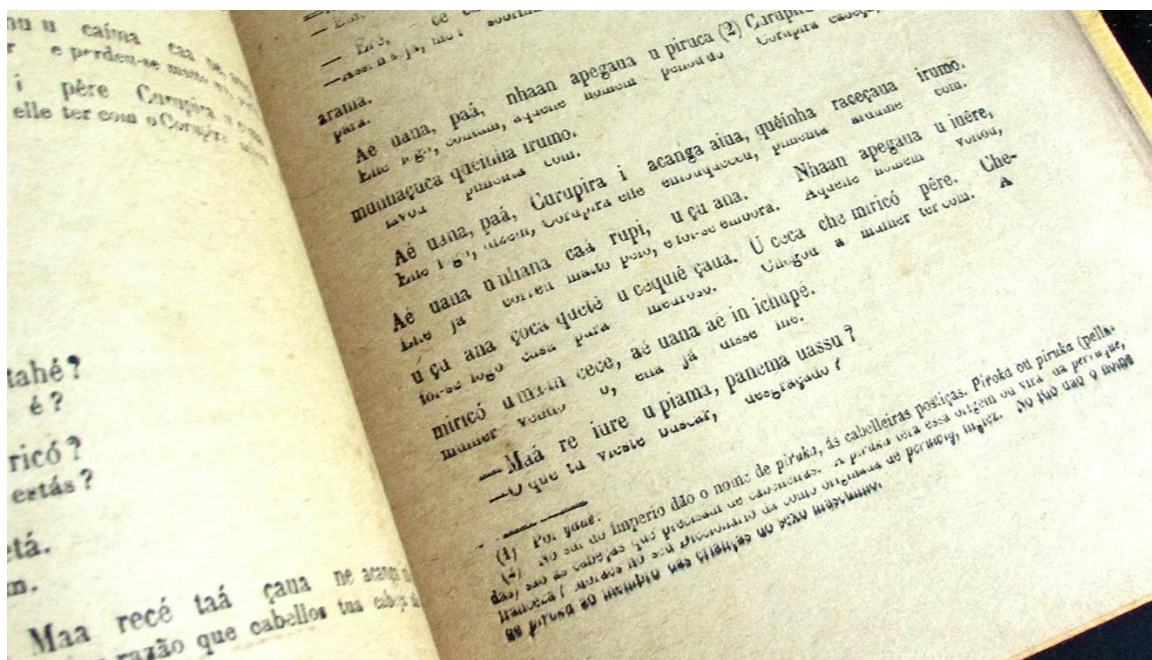 ou u caíma caa pe
e perdeu-se muito
i pêre Curupira u
elle ter com o Curupira
tahé?
é?
ricó?
estás?
etá.
m.
Maa recé taá çaua ne acanga
razão que cabellos tua cabeça
arama.
para.
Aé uana, paá, nhaan apegaua u piruca (2) Curupira
Elle logo, contam, aquelle homem pellou do Curupira cabeça,
munhaçuca queinha irumo.
lavou pimenta com.
Aé uana, paá, Curupira i acanga aiua, quêinha raceçaua irumo.
Elle logo, dizem, Curupira elle enlouqueceu, pimenta ardume com.
Aé uana u nhana caá rupi, u çu ana. Nhaan apegaua u iuêre,
Elle já correu matto pelo, e foi-se embora. Aquelle homem voltou,
u çu ana çoca quetê u cequiê çaua. U ceca che miricó pêre. Che-
foi-se logo casa para medroso. Chegou a mulher ter com. A
miricó u maan cece, aé uana aé in ichupé.
mulher vendo o, ella já disse lhe.
—Maá re iure u piama, panema uassu?
—O que tu vieste buscar, desgraçado?
(1) Por yané.
(2) No sul do Imperio dão o nome de piruka, ás cabelleiras postiças. Piroka ou piruka (pella-
das) são as cabeças que precisam de cabelleiras. A piruka terá essa origem ou virá da perruque,
franceza? Moraes no seu Diccionario dá como originada de periwig, inglez. No sul dão o nome
de piroka ao membro das crianças do sexo masculino.